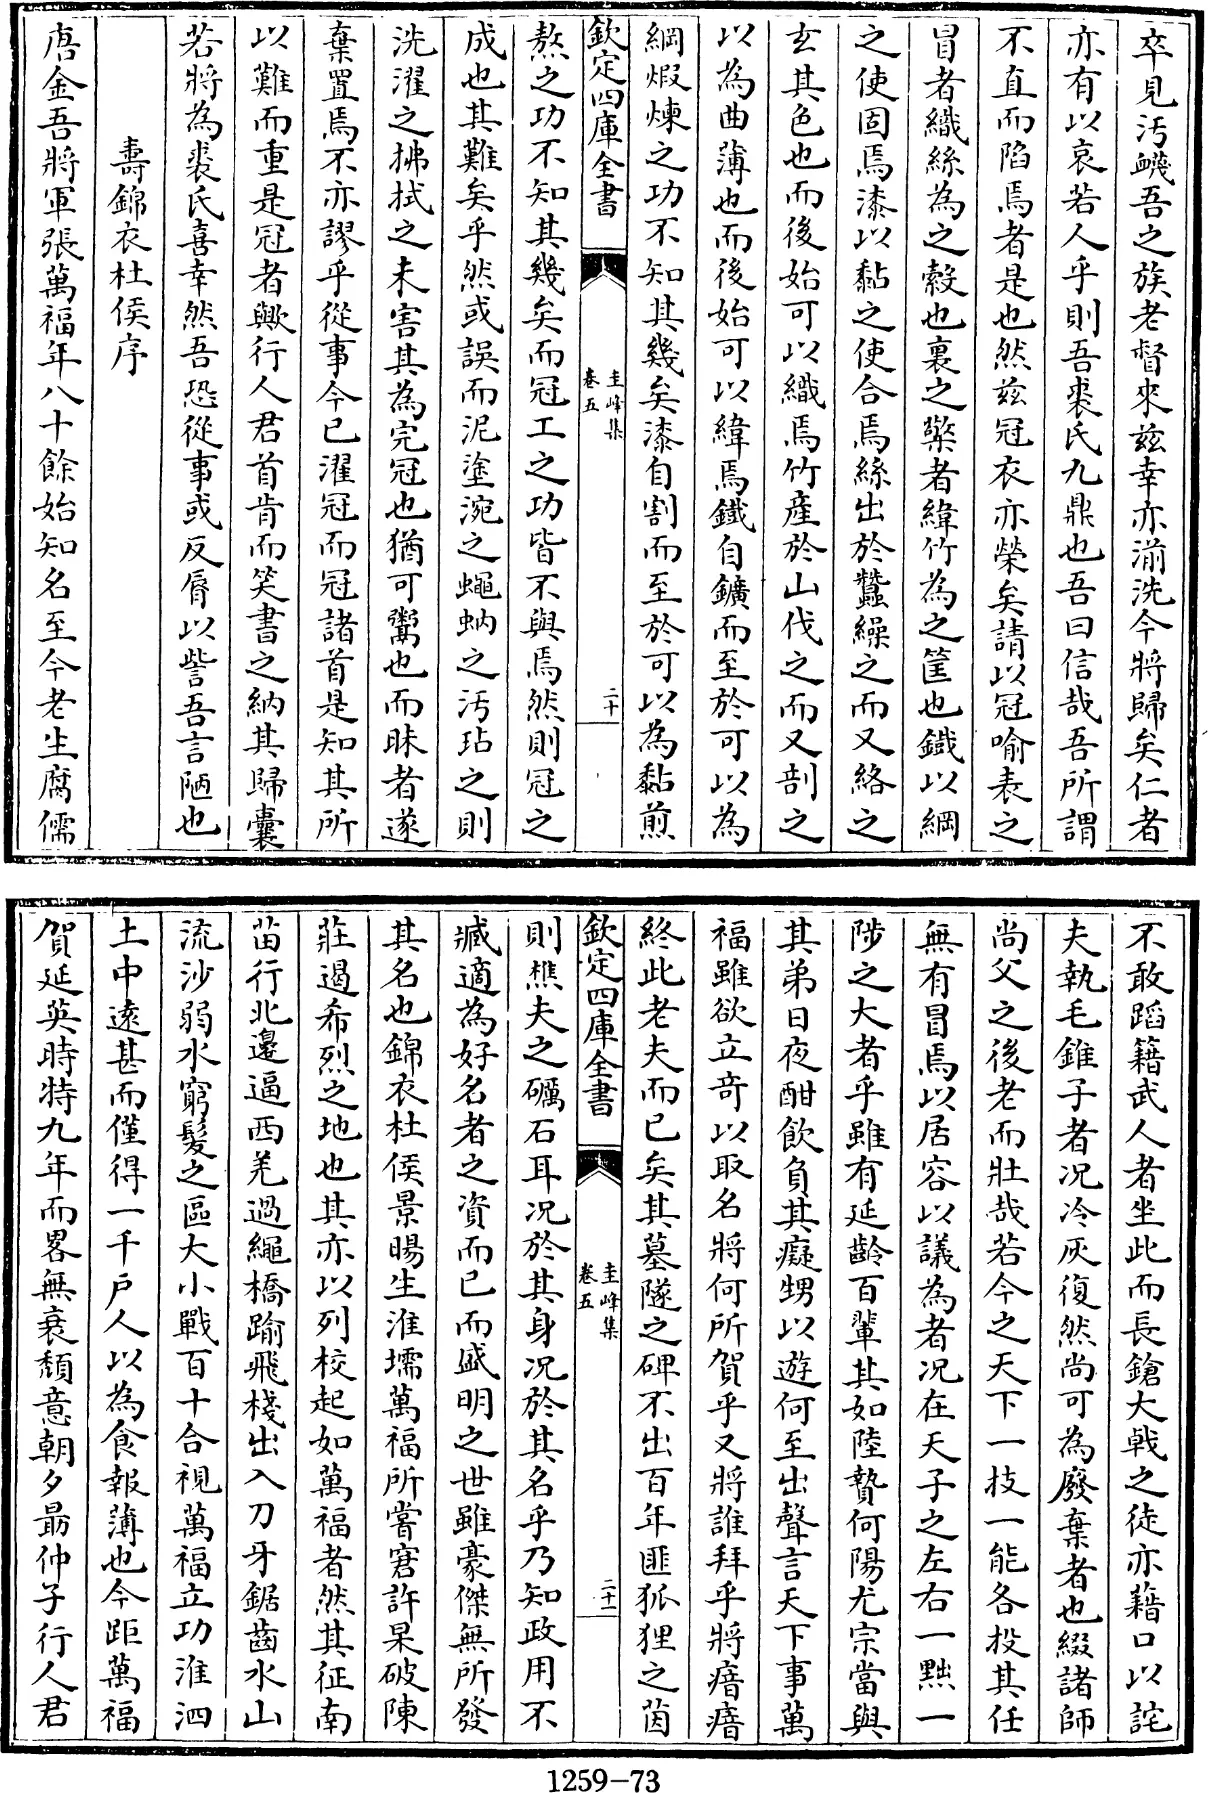 卒見汚衊吾之族老督來兹幸亦湔洗今將歸矣仁者
亦有以哀若人乎則吾裘氏九鼎也吾曰信哉吾所謂
不直而陷焉者是也然兹冠衣亦榮矣請以冠喻表之
冒者織絲為之縠也裏之檠者緯竹為之筐也鐡以綱
之使固焉漆以黏之使合焉絲出於蠶繰之而又絡之
玄其色也而後始可以織焉竹產於山伐之而又剖之
以為曲薄也而後始可以緯焉鐵自鑛而至於可以為
綱煆煉之功不知其幾矣漆自割而至於可以為黏煎
欽定四庫全書
圭峰集
卷五
二十
熬之功不知其幾矣而冠工之功皆不與焉然則冠之
成也其難矣乎然或誤而泥塗涴之蠅蚋之汚玷之則
洗濯之拂拭之未害其為完冠也猶可鬻也而昧者遂
棄置焉不亦謬乎從事今已濯冠而冠諸首是知其所
以難而重是冠者歟行人君首肯而笑書之納其歸囊
若將為裘氏喜幸然吾恐從事或反脣以訾吾言陋也
壽錦衣杜侯序
唐金吾將軍張萬福年八十餘始知名至今老生腐儒
不敢蹈籍武人者坐此而長鎗大戟之徒亦藉口以詫
夫執毛錐子者况冷灰復然尚可為廢棄者也綴諸師
尚父之後老而壯哉若今之天下一技一能各投其任
無有冒焉以居容以議為者况在天子之左右一黜一
陟之大者乎雖有延齡百輩其如陸贄何陽尤宗當與
其弟日夜酣飲負其癡甥以遊何至出聲言天下事萬
福雖欲立竒以取名將何所賀乎又將誰拜乎將瘖瘖
終此老夫而已矣其墓隧之碑不出百年匪狐狸之茵
欽定四庫全書
圭峰集
卷五
二十一
則樵夫之礪石耳况於其身况於其名乎乃知政用不
臧適為好名者之資而已而盛明之世雖豪傑無所發
其名也錦衣杜侯景暘生淮壖萬福所嘗窘許杲破陳
莊遏希烈之地也其亦以列校起如萬福者然其征南
苗行北邊逼西羌過繩橋踰飛棧出入刀牙鋸齒水山
流沙弱水窮髮之區大小戰百十合視萬福立功淮泗
土中遠甚而僅得一千戶人以為食報薄也今距萬福
賀延英時特九年而畧無衰頹意朝夕朂仲子行人君
1259-73